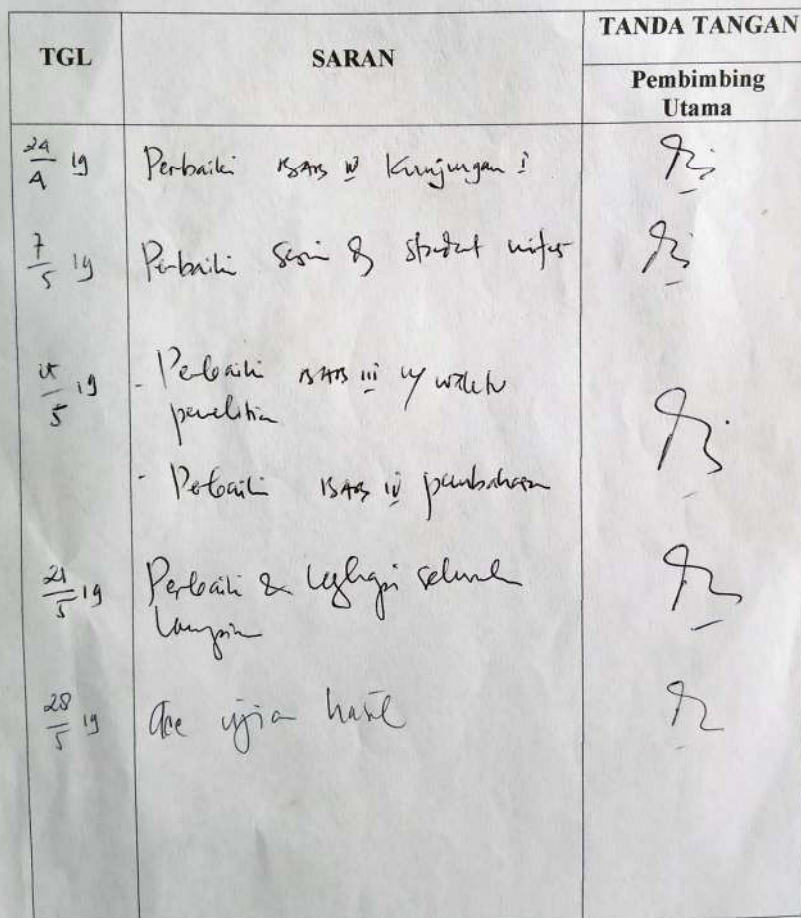 TGL
SARAN
TANDA TANGAN
Pembimbing
Utama
24/4 19 Perbaiki BAB IV Kunjungan I
7/5 19 Perbaiki
5 19 - Perbaiki BAB III waktu
penelitian
- Perbaiki BAB IV pembahasan
21/5 19 Perbaiki & lengkapi seluruh
lampiran
28/5 19 Acc ujian hasil